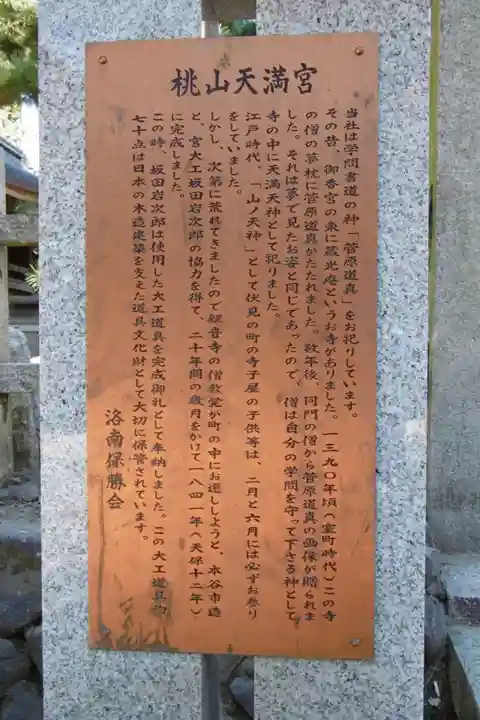 桃山天満宮
当社は学問書道の神「菅原道真」をお祀りしています。
その昔、御香宮の東に蔵光庵というお寺がありました。一三九〇年頃（室町時代）この寺
の僧の夢枕に菅原道真がたたれました。数年後、同門の僧から菅原道真の画像が贈られま
した。それは夢で見たお姿と同じであったので、僧は自分の学問を守って下さる神として
寺の中に天満天神として祀りました。
江戸時代、「山ノ天神」として伏見の町の寺子屋の子供等は、二月と六月には必ずお参り
をしていました。
しかし、次第に荒れてきましたので観音寺の僧教覚が町の中にお遷ししようと、本谷市造
と、宮大工坂田岩次郎の協力を得て、二十年間の歳月をかけて一八四一年（天保十二年）
に完成しました。
この時、坂田岩次郎は使用した大工道具を完成御礼として奉納しました。この大工道具約
七十点は日本の木造建築を支えた道具文化財として大切に保管されています。
洛南保勝会